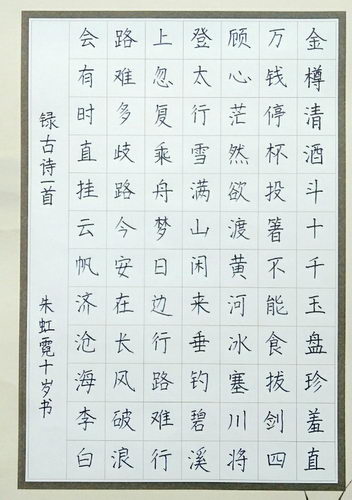 金樽清酒斗十千玉盘珍羞直
万钱停杯投箸不能食拔剑四
顾心茫然欲渡黄河冰塞川将
登太行雪满山闲来垂钓碧溪
上忽复乘舟梦日边行路难行
路难多歧路今安在长风破浪
会有时直挂云帆济沧海李白
録古诗一首 朱虹霓十岁书